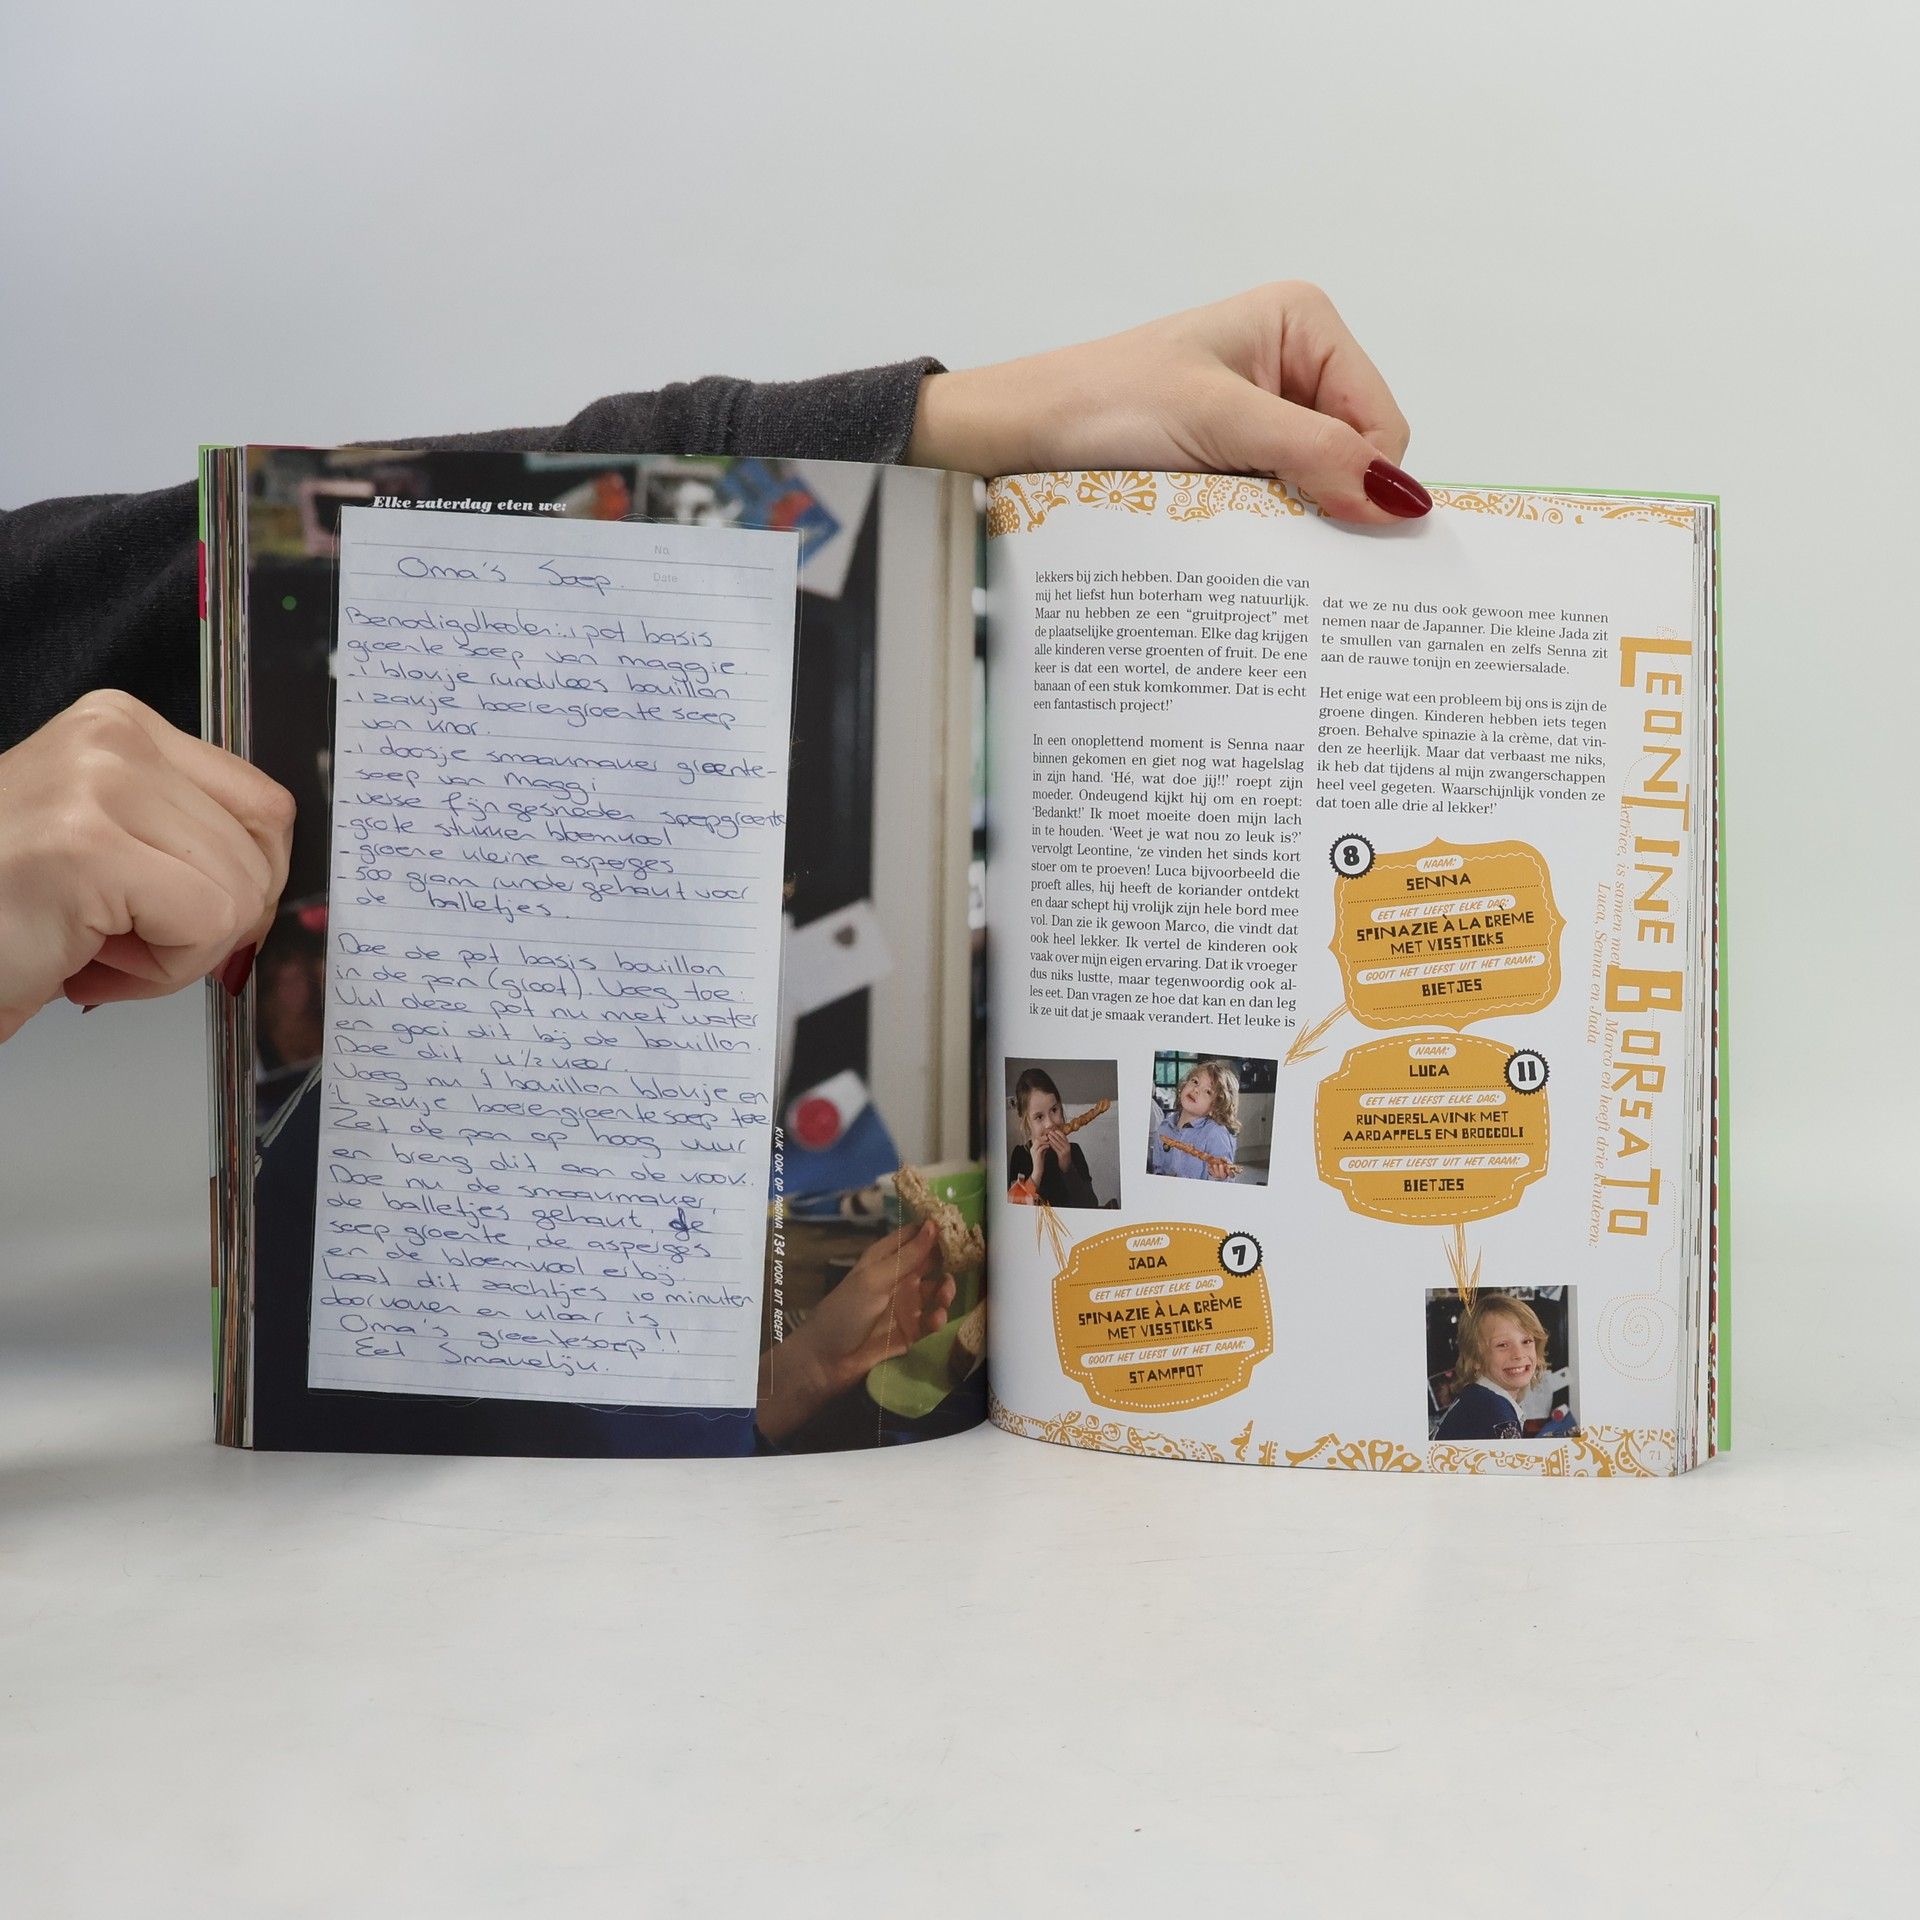 Elke zaterdag eten we:
No.
Date
Oma's Soep.
Benodigdheden: 1 pot basis
groente soep van maggie.
- 1 blokje rundvlees bouillon
- 1 zakje boerengroente soep
van knor.
- 1 doosje smaakmaker groente-
soep van Maggi
- verse fijn gesneden soepgroente
- grote stukken bloemkool
- groene kleine asperges
- 500 gram runder gehakt voor
de balletjes.
Doe de pot basis bouillon
in de pan (groot). Voeg toe:
Vul deze pot nu met water
en gooi dit bij de bouillon.
Doe dit 4½ keer.
Voeg nu 't bouillon blokje en
't zakje boerengroentesoep toe
Zet de pan op hoog vuur
en breng dit aan de kook.
Doe nu de smaakmaker,
de balletjes gehakt, de
soep groente, de asperges
en de bloemkool erbij.
Laat dit zachtjes 10 minuten
doorkoken en klaar is
Oma's groentesoep!!
Eet Smakelijk.
KIJK OOK OP PAGINA 134 VOOR DIT RECEPT
lekkers bij zich hebben. Dan gooiden die van
mij het liefst hun boterham weg natuurlijk.
Maar nu hebben ze een “gruitproject” met
de plaatselijke groenteman. Elke dag krijgen
alle kinderen verse groenten of fruit. De ene
keer is dat een wortel, de andere keer een
banaan of een stuk komkommer. Dat is echt
een fantastisch project!’
In een onoplettend moment is Senna naar
binnen gekomen en giet nog wat hagelslag
in zijn hand. ‘Hé, wat doe jij!!’ roept zijn
moeder. Ondeugend kijkt hij om en roept:
‘Bedankt!’ Ik moet moeite doen mijn lach
in te houden. ‘Weet je wat nou zo leuk is?’
vervolgt Leontine, ‘ze vinden het sinds kort
stoer om te proeven! Luca bijvoorbeeld die
proeft alles, hij heeft de koriander ontdekt
en daar schept hij vrolijk zijn hele bord mee
vol. Dan zie ik gewoon Marco, die vindt dat
ook heel lekker. Ik vertel de kinderen ook
vaak over mijn eigen ervaring. Dat ik vroeger
dus niks lustte, maar tegenwoordig ook al-
les eet. Dan vragen ze hoe dat kan en dan leg
ik ze uit dat je smaak verandert. Het leuke is
dat we ze nu dus ook gewoon mee kunnen
nemen naar de Japanner. Die kleine Jada zit
te smullen van garnalen en zelfs Senna zit
aan de rauwe tonijn en zeewiersalade.
Het enige wat een probleem bij ons is zijn de
groene dingen. Kinderen hebben iets tegen
groen. Behalve spinazie à la crème, dat vin-
den ze heerlijk. Maar dat verbaast me niks,
ik heb dat tijdens al mijn zwangerschappen
heel veel gegeten. Waarschijnlijk vonden ze
dat toen alle drie al lekker!’
8
NAAM:
SENNA
EET HET LIEFST ELKE DAG:
SPINAZIE À LA CRÈME
MET VISSTICKS
GOOIT HET LIEFST UIT HET RAAM:
BIETJES
11
NAAM:
LUCA
EET HET LIEFST ELKE DAG:
RUNDERSLAVINK MET
AARDAPPELS EN BROCCOLI
GOOIT HET LIEFST UIT HET RAAM:
BIETJES
7
NAAM:
JADA
EET HET LIEFST ELKE DAG:
SPINAZIE À LA CRÈME
MET VISSTICKS
GOOIT HET LIEFST UIT HET RAAM:
STAMPPOT
LEONTINE BORSATO
Actrice, is samen met Marco en heeft drie kinderen:
Luca, Senna en Jada
71